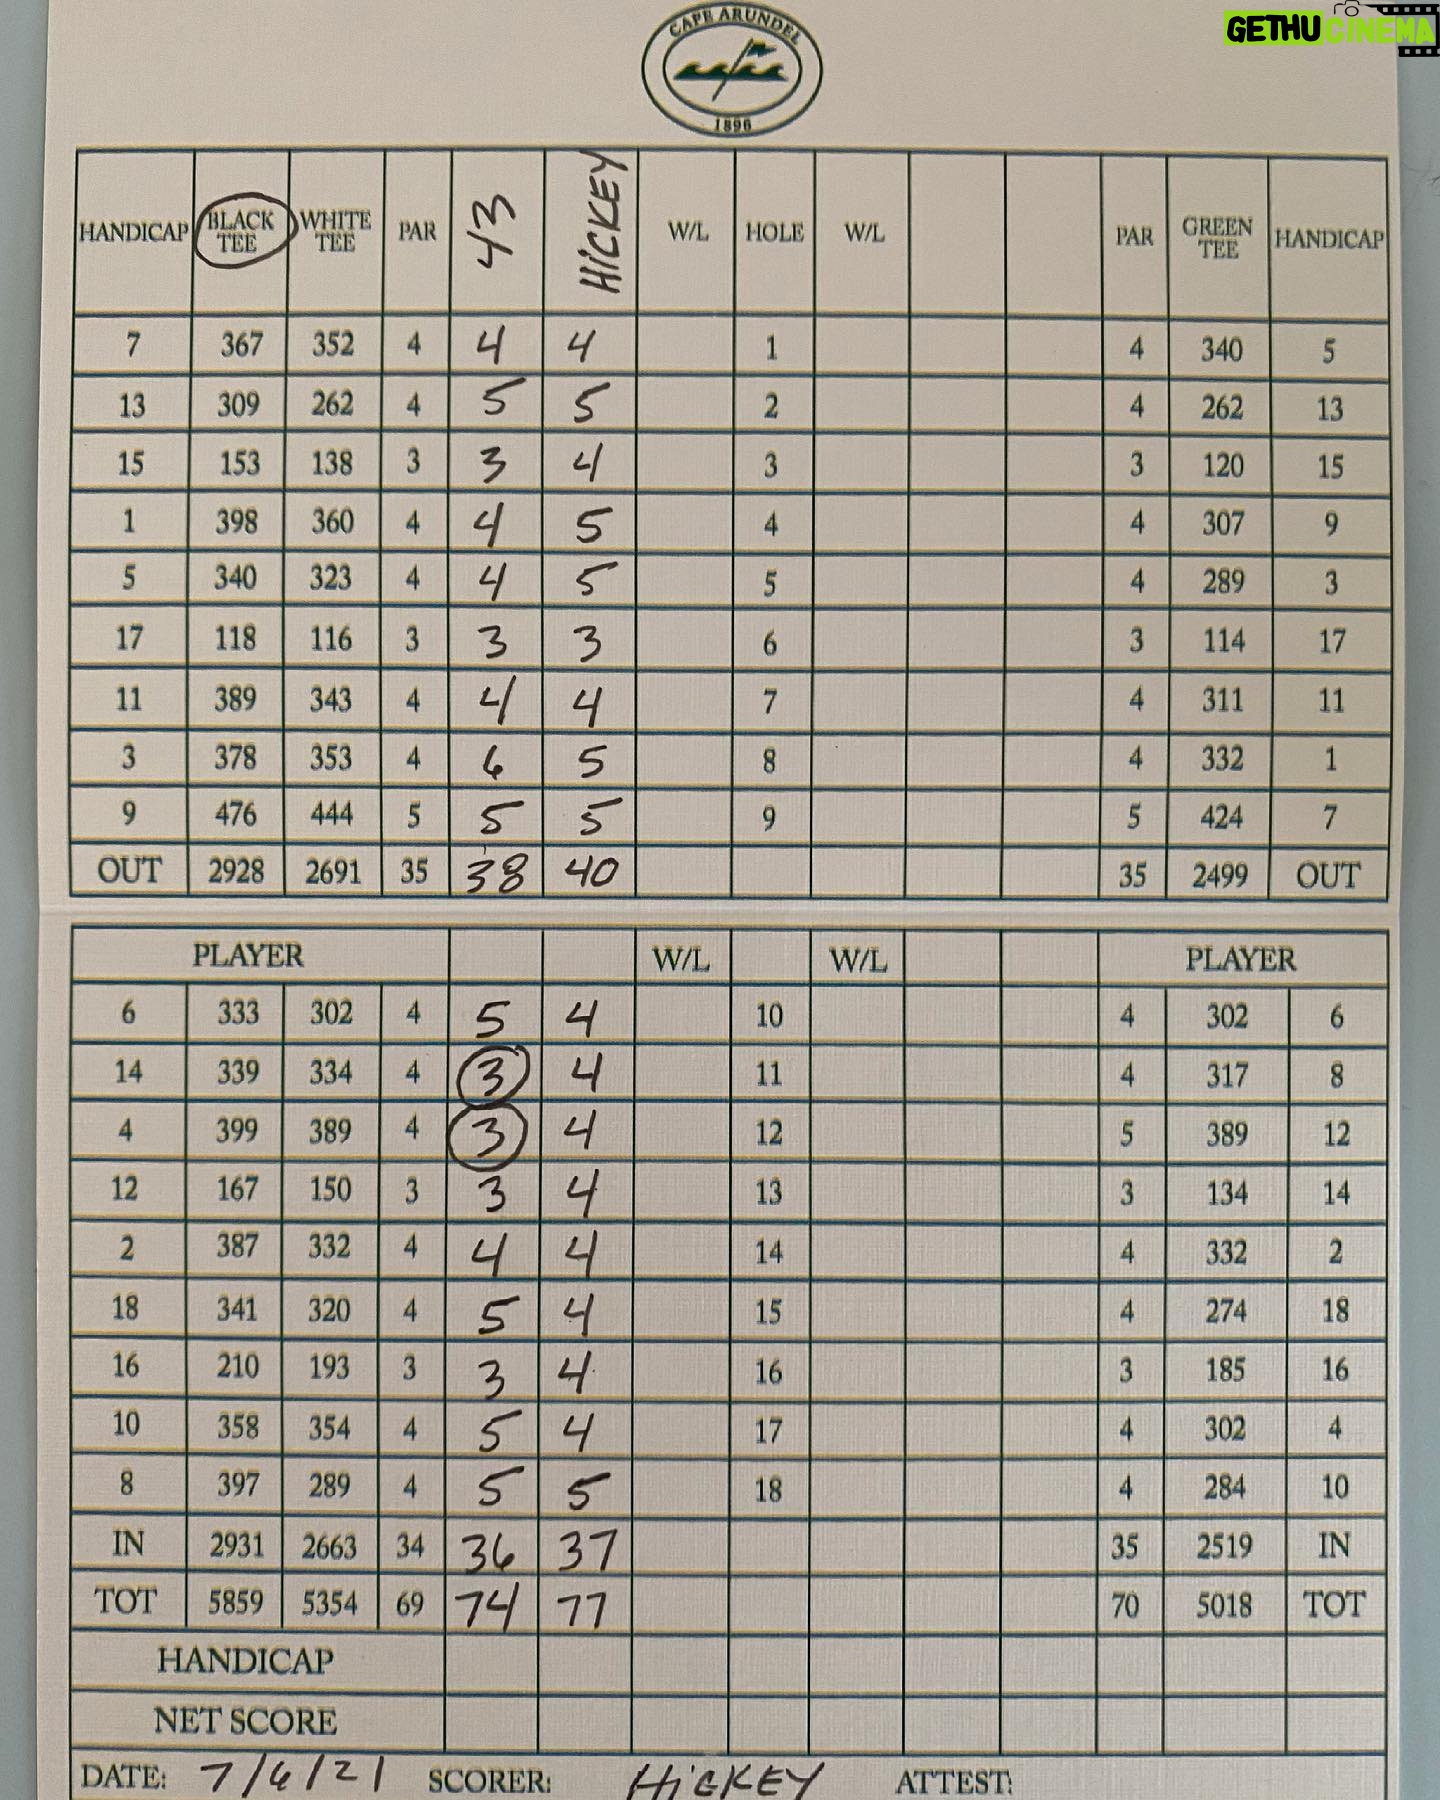 GETHUCINEMA
CAPE ARUNDEL
1896
HANDICAP BLACK TEE WHITE TEE PAR 43 HICKEY W/L HOLE W/L PAR GREEN TEE HANDICAP
7 367 352 4 4 4 1 4 340 5
13 309 262 4 5 5 2 4 262 13
15 153 138 3 3 4 3 3 120 15
1 398 360 4 4 5 4 4 307 9
5 340 323 4 4 5 5 4 289 3
17 118 116 3 3 3 6 3 114 17
11 389 343 4 4 4 7 4 311 11
3 378 353 4 6 5 8 4 332 1
9 476 444 5 5 5 9 5 424 7
OUT 2928 2691 35 38 40 35 2499 OUT
PLAYER W/L W/L PLAYER
6 333 302 4 5 4 10 4 302 6
14 339 334 4 3 4 11 4 317 8
4 399 389 4 3 4 12 5 389 12
12 167 150 3 3 4 13 3 134 14
2 387 332 4 4 4 14 4 332 2
18 341 320 4 5 4 15 4 274 18
16 210 193 3 3 4 16 3 185 16
10 358 354 4 5 4 17 4 302 4
8 397 289 4 5 5 18 4 284 10
IN 2931 2663 34 36 37 35 2519 IN
TOT 5859 5354 69 74 77 70 5018 TOT
HANDICAP
NET SCORE
DATE: 7/6/21 SCORER: HICKEY ATTEST: